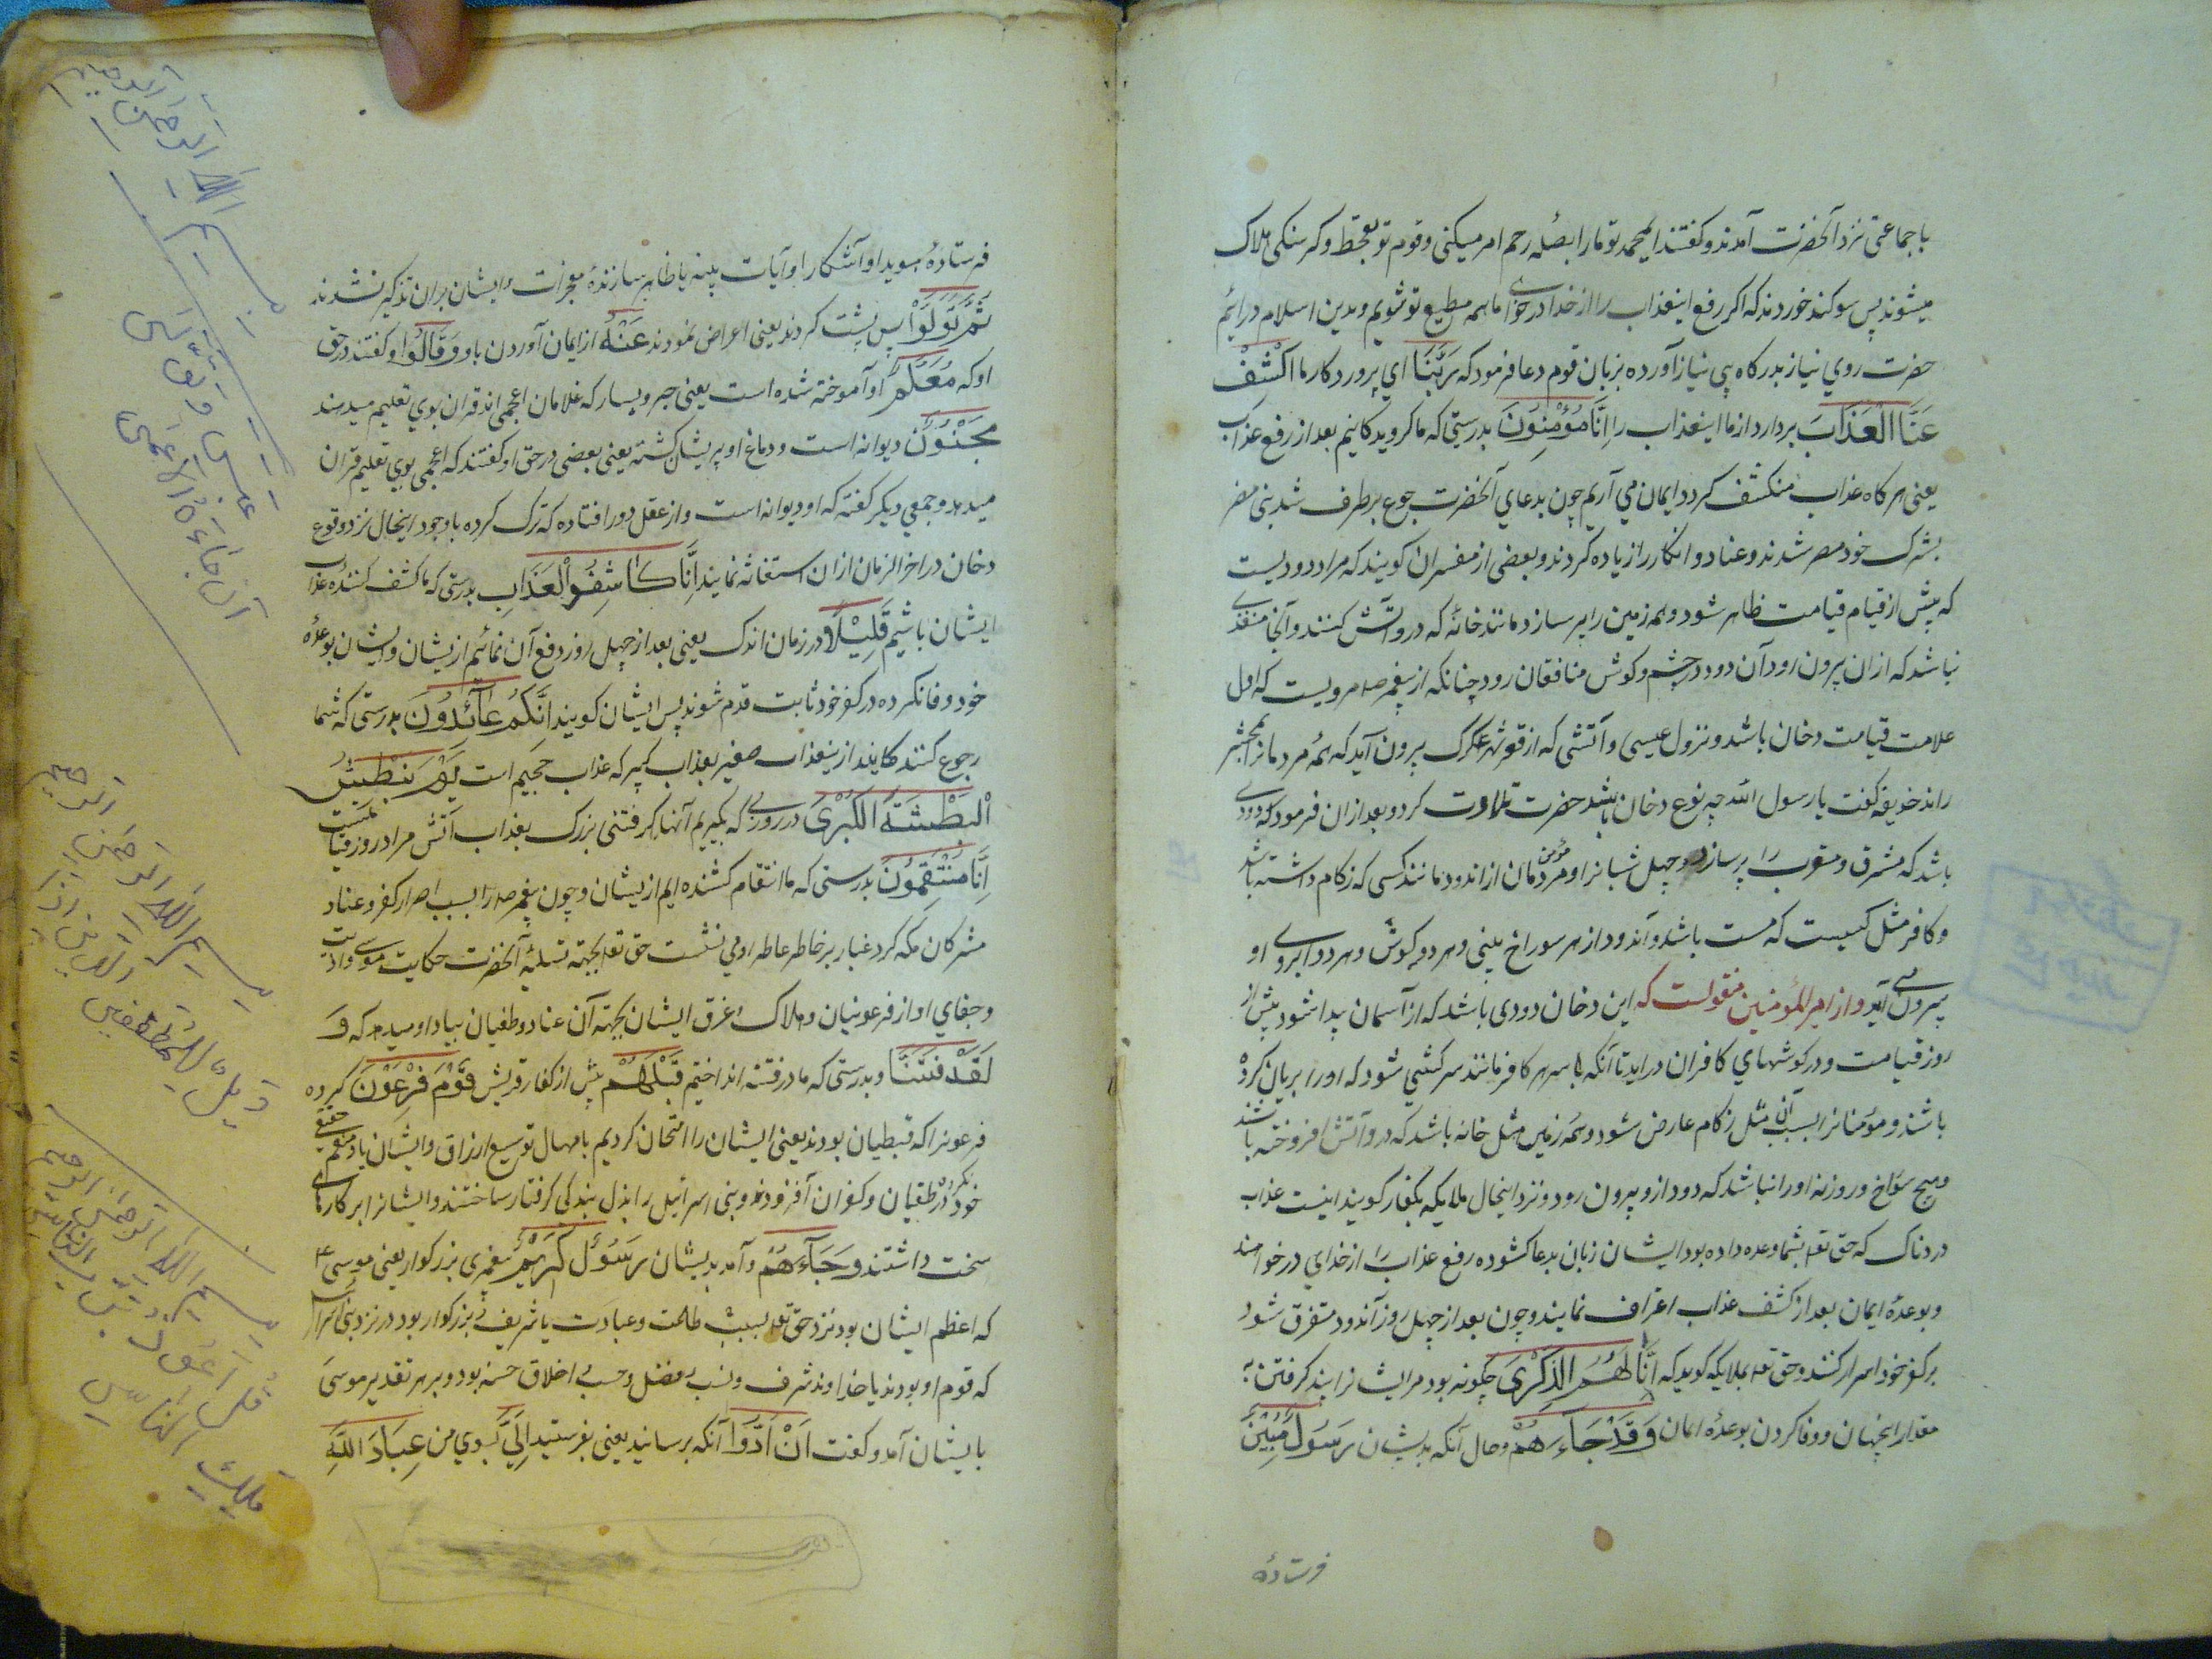 با جماعتی نزد آنحضرت آمدند و کفتند ایمحمد تو ما را بصله رحم امر میکنی و قوم تو بقحط و کرسنکی هلاک
میشوند پس سوکند خوردند که اکر رفع اینعذاب را از خدا در خواهی ما همه مطیع تو شویم و بدین اسلام درآئیم
حضرت روي نیاز بدرکاه بی نیاز آورده بزبان قوم دعا فرمود که رَبَّنَا اي پروردکار ما اکْشِفْ
عَنَّا الْعَذَابَ بردار از ما اینعذاب را اِنَّا مُؤْمِنُونَ بدرستی که ما کرویدکانیم بعد از رفع عذاب
یعنی هرکاه عذاب منکشف کردد ایمان می آریم چون بدعاي آنحضرت جوع برطرف شد بنی مضر
بشرک خود مصر شدند و عناد و انکار را زیاده کردند و بعضی از مفسران کویند که مراد دودیست
که پیش از قیام قیامت ظاهر شود و همه زمین را پر سازد مانند خانهٔ که درو آتش کنند و آنجا منفذی
نباشد که ازان بیرون رود آن دود در چشم و کوش منافقان رود چنانکه از پیغمبر صلعم مرویست که اول
علامت قیامت دخان باشد و نزول عیسی و آتشی که از قعر بیرون آید که همهٔ مردمانرا بمحشر
راند حذیفه کفت یا رسول الله چه نوع دخان باشد حضرت تلاوت کرد و بعد ازان فرمود که دودی
باشد که مشرق و مغرب را پر سازد و چهل شبانروز و مردمان مؤمن ازاندود مانند کسی که زکام داشته باشد
و کافر مثل کسیست که مست باشد و آندود از هر سوراخ بینی و هر دو کوش و هر دو ابروی او
بیرون می آید و از امیرالمؤمنین منقولست که این دخان دودی باشد که از آسمان پیدا شود پیش از
روز قیامت و در کوشهاي کافران دراید تا آنکه با سر هر کافر مانند سر کشتی شود که اورا بریان کرده
باشند و مؤمنانرا بسبب آن مثل زکام عارض شود و همه زمین مثل خانه باشد که درو آتش افروخته باشند
و هیچ سوراخ و روزنه اورا نباشد که دود ازو بیرون رود و نزد اینحال ملایکه بکفار کویند اینست عذاب
دردناک که حق تعه بشما وعده داده بود ایشان زبان بدعا کشوده رفع عذاب را از خداي درخواهند
و بوعدهٔ ایمان بعد از کشف عذاب اعتراف نمایند و چون بعد از چهل روز آندود متفرق شود
بر کفر خود اصرار کنند و حق تعه بملایکه کوید که اَنَّا لَهُمُ الذِّکْرَیٰ چکونه بود مر ایشانرا پند کرفتن
مقدار اینچهان و وفا کردن بوعدهٔ ایمان وَقَدْ جَاءَهُمْ و حال آنکه بدیشان رَسُولٌ مُبِیْنٌ
فرستادهٔ
فرستادهٔ هویدا و آشکارا و آیات بینه یا ظاهر سازندهٔ معجزات و ایشان بران تذکیر نشدند
ثُمَّ تَوَلَّوْا پس پشت کردند یعنی اعراض نمودند عَنْهُ از ایمان آوردن باو وَقَالُوا و کفتند در حق
او که مُعَلَّمٌ او آموخته شده است یعنی جبر و یسار که غلامان اعجمی اند قران بوي تعلیم میدهند
مَجْنُونٌ دیوانه است و دماغ او پریشان کشته یعنی بعضی در حق او کفتند که اعجمی بوي تعلیم قران
میدهد و جمعي دیکر کفته که او دیوانه است و از عقل دور افتاده که ترک کرده باوجود اینحال نزد وقوع
دخان در اخر الزمان ازان استغاثه نمایند اِنَّا کَاشِفُوا الْعَذَابِ بدرستی که ما کشف کنندهٔ عذاب
ایشان باشیم قَلِیْلًا در زمان اندک یعنی بعد از چهل روز دفع آن نمائیم ازیشان و ایشان بوعدهٔ
خود وفا نکرده در کفر خود ثابت قدم شوند پس ایشان کویند اِنَّکُمْ عَائِدُونَ بدرستی که شما
رجوع کنندکانید ازینعذاب صغیر بعذاب کبیر که عذاب جحیم است یَوْمَ نَبْطِشُ
الْبَطْشَةَ الْکُبْرَیٰ در روزی که بکیریم آنهارا کرفتنی بزرک بعذاب آتش مراد روز قیامتست
اِنَّا مُنْتَقِمُونَ بدرستی که ما انتقام کشنده ایم ازیشان و چون پیغمبر را بسبب اصرار کفر و عناد
مشرکان مکه کرد غبار بر خاطر عاطر او می نشست حق تعه بجهة تسلیهٔ آنحضرت حکایت موسی و اذیت
و جفاي او از فرعونیان و هلاک و غرق ایشان بجهة آن عناد و طغیان بیاد او میدهد که وَ
لَقَدْ فَتَنَّا و بدرستی که ما در فتنه انداختیم قَبْلَهُمْ پیش از کفار قریش قَوْمَ فِرْعَوْنَ کروه
فرعونرا که قبطیان بودند یعنی ایشان را امتحان کردیم بامهال توسیع ارزاق و ایشان با منعم حقیقی
خود در طغیان و کفران آفزودند و بنی اسرائیل را بذل بندکی کرفتار ساختند و ایشانرا بر کارهای
سخت داشتند وَجَاءَهُمْ و آمد بدیشان رَسُوْلٌ کَرِیْمٌ پیغمبری بزرکوار یعنی موسی ع
که اعظم ایشان بود نزد حق تعه بسبب طاعت و عبادت یا شریف و بزرکوار بود در نزد بنی اسرائیل
که قوم او بودند یا خداوند شرف و نسب و فضل و حسب و اخلاق حسنه بود و بر هر تقدیر موسی
بایشان آمد و کفت اَنْ اَدُّوا آنکه برسانید یعنی بفرستید اِلَیَّ بسوي من عِبَادَ اللّٰهِ
بسم الله الرحمن الرحیم
عَبَسَ وَتَوَلّٰی
اَنْ جَاءَهُ الْاَعْمٰی
بسم الله الرحمن الرحیم
وَیْلٌ لِلْمُطَفِّفِینَ
الَّذِینَ اِذَا
بسم الله الرحمن الرحیم
قُلْ اَعُوذُ بِرَبِّ النَّاسِ
مَلِكِ النَّاسِ